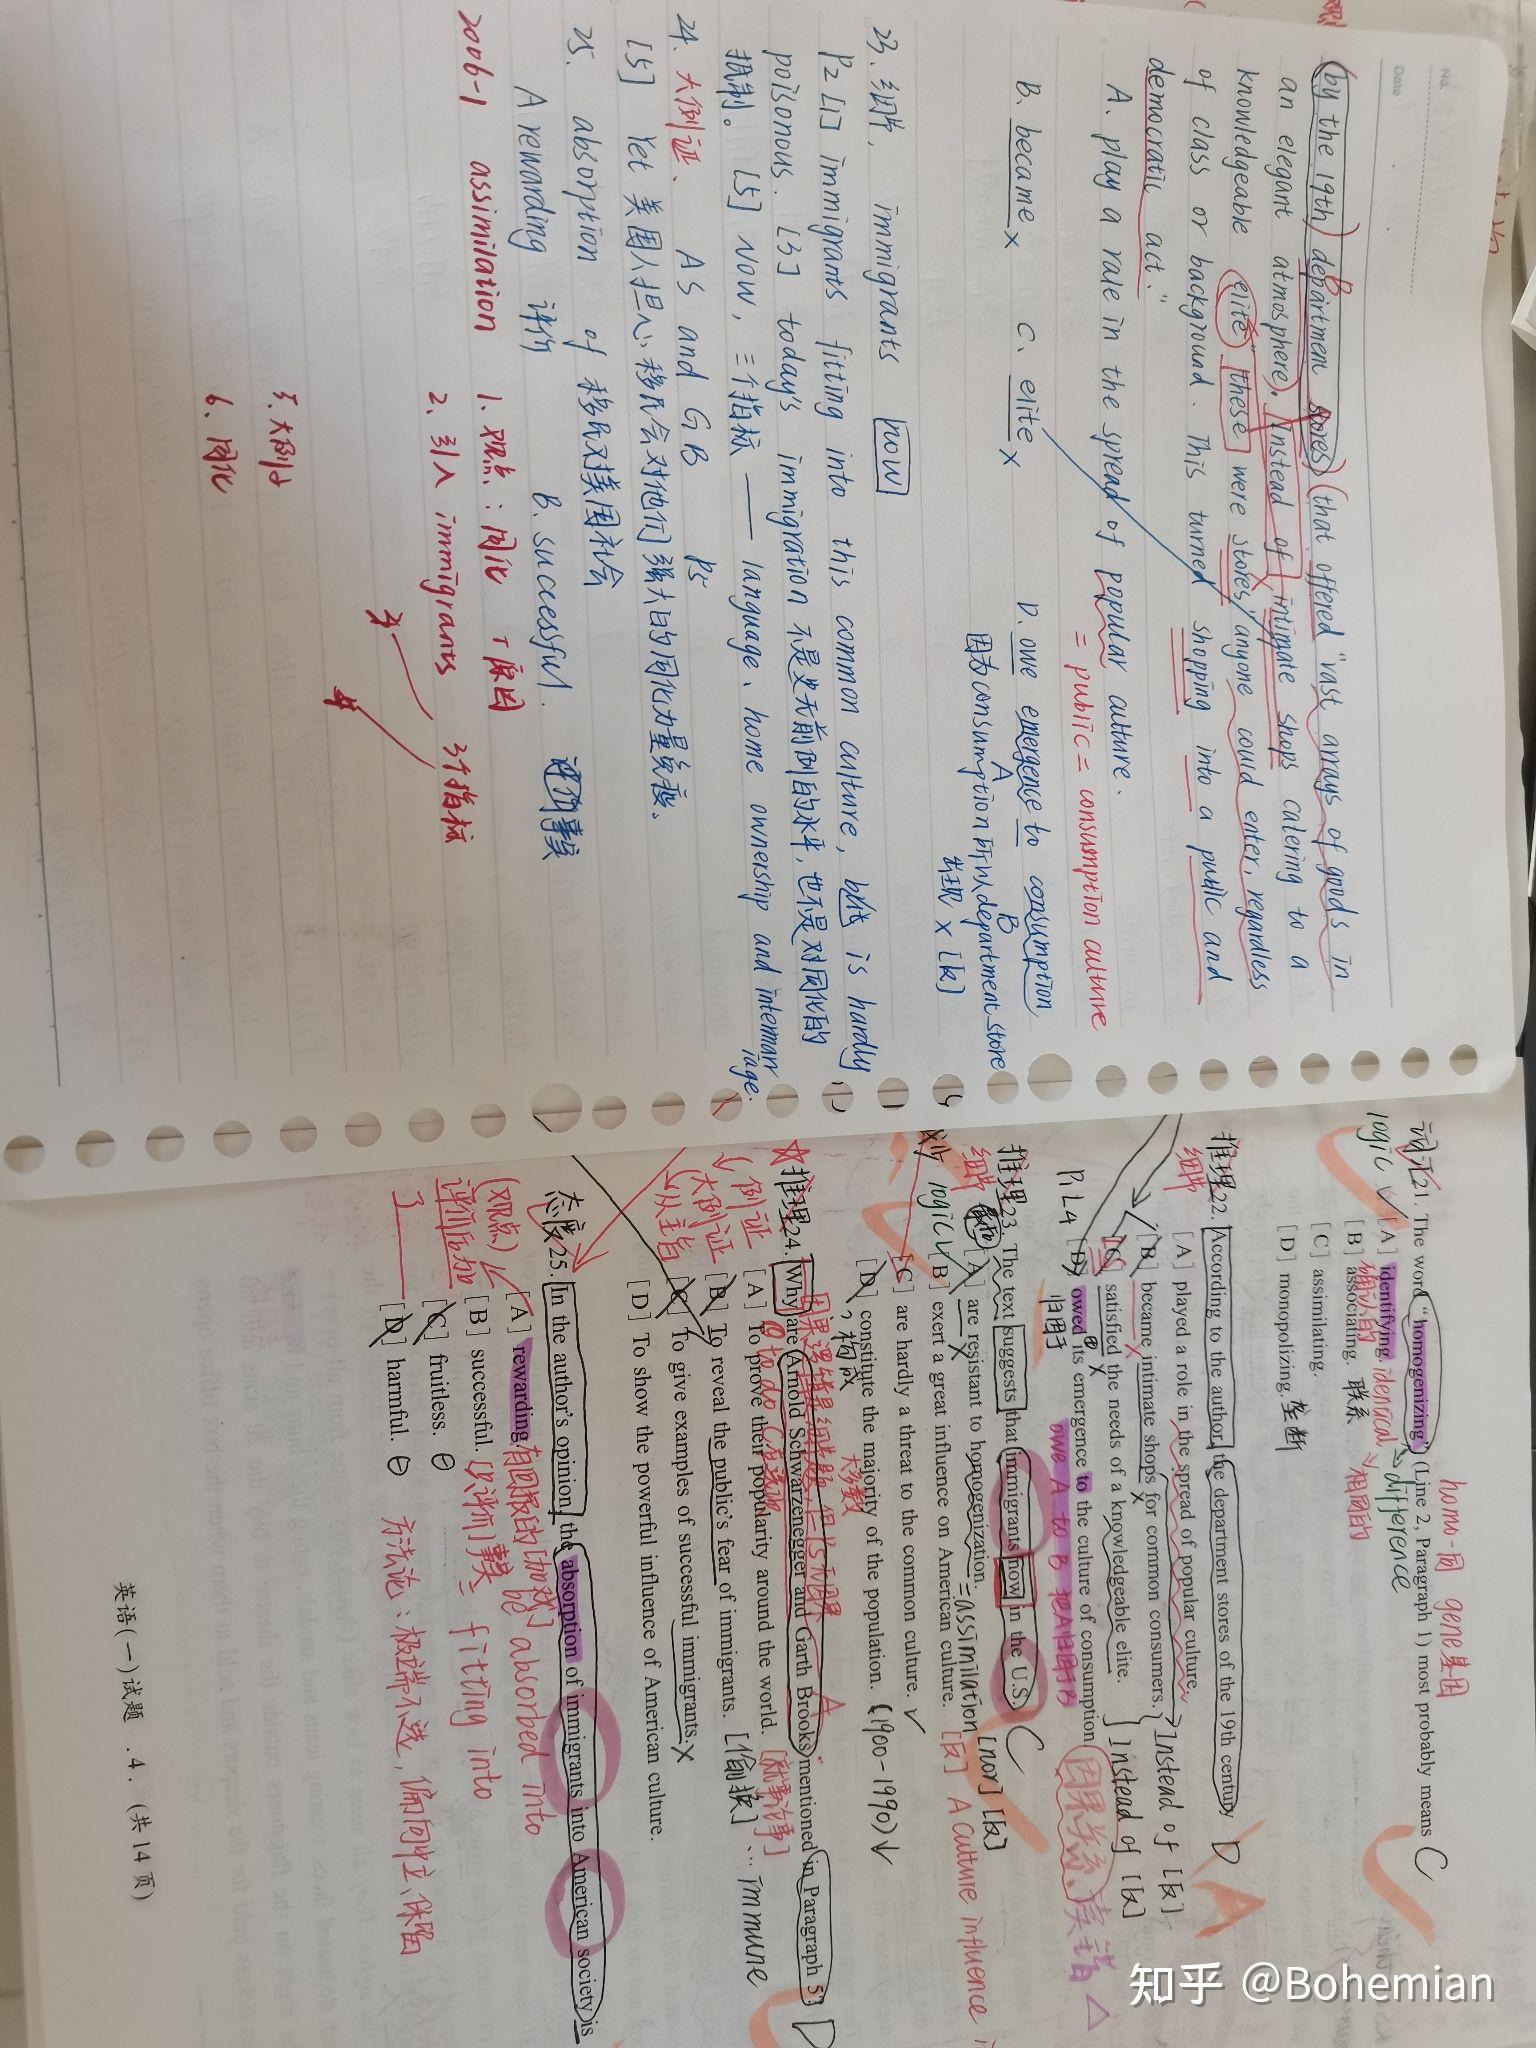 No.
Date
(by the 19th) department stores) (that offered "vast arrays of goods in
an elegant atmosphere). Instead of intimate shops catering to a
knowledgeable elite" these were stores "anyone could enter, regardless
of class or background. This turned shopping into a public and
democratic act."
A. play a role in the spread of popular culture.
= public = consumption culture
B. became × C. elite × D. owe emergence to consumption
A B
因为consumption所以department store
出现 × [反]
23. 细节, immigrants now
P2 [1] immigrants fitting into this common culture, but is hardly
poisonous. [3] today's immigration 不是史无前例的水平, 也不是对同化的
抵制。 [5] Now, 三个指标 —— language、home ownership and intermarriage.
24. 大例证、 AS and GB P5
[5] Yet 美国人担心移民会对他们强大的同化力量免疫、
25. absorption of 移民对美国社会
A rewarding 评价 B. successful. 评价事实
2006-1 assimilation 1. 观点:同化 + 原因
2. 引入 immigrants 3个指标
3
4
5. 大例子
6. 同化
homo-同 gene基因
词汇21. The word "homogenizing" (Line 2, Paragraph 1) most probably means C
logic ✓ → difference
[A] identifying. identical → 相同的
确认的
[B] associating. 联系
[C] assimilating.
[D] monopolizing. 垄断
推理22. According to the author, the department stores of the 19th century D A
细节
[A] played a role in the spread of popular culture.
[B] became intimate shops for common consumers. × Instead of [反]
[C] satisfied the needs of a knowledgeable elite. × Instead of [反]
P1L4 [D] owed its emergence to the culture of consumption 因果关系.
归因于 owe A to B 把A归因于B
推理23. The text suggests that immigrants now in the U.S. C
细节
[A] are resistant to homogenization. = assimilation [nor] [反]
logic ✓ [B] exert a great influence on American culture. [反] A culture influence i
[C] are hardly a threat to the common culture. ✓
[D] constitute the majority of the population. (1900-1990) ↓
构成 大多数
推理24. Why are Arnold Schwarzenegger and Garth Brooks mentioned in Paragraph 5? D
例证
大例证
从主旨
[A] To prove their popularity around the world. [就事论事]
[B] To reveal the public's fear of immigrants. [偷换] ... immune
[C] To give examples of successful immigrants. ×
[D] To show the powerful influence of American culture.
态度25. In the author's opinion, the absorption of immigrants into American society is
(观点)
[A] rewarding. 有回报的 be absorbed into
[B] successful. 只评价事实 fitting into
[C] fruitless. ⊖
[D] harmful. ⊖ 方法论:极端不选, 偏向中立、保留
英语(一)试题 .4. (共14页)
知乎 @Bohemian